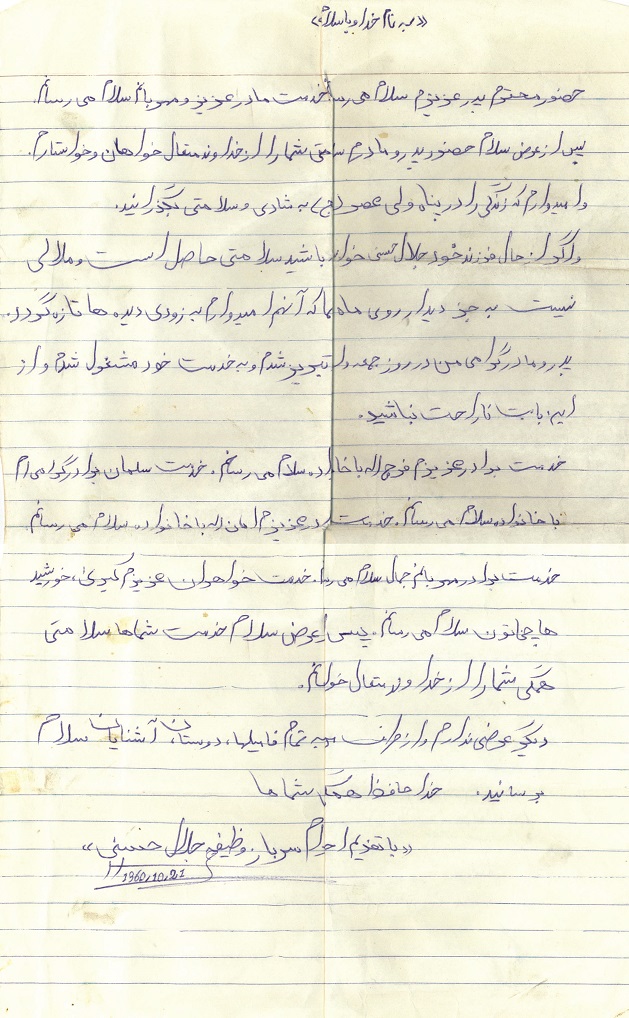 «به نام خدا و با سلام»
حضور محترم پدر عزیزم سلام می رسانم خدمت مادر عزیز و مهربانم سلام می رسانم.
پس از عرض سلام حضور پدر و مادرم سلامتی شما را از خداوند متعال خواهان و خواستارم.
و امیدوارم که زندگی را در پناه ولی عصر (عج) به شادی و سلامتی بگذرانید.
و اگر از حال فرزند خود جلال حسنی خواسته باشید سلامتی حاصل است و ملالی
نیست به جز دیدار روی ماه شما که آنهم امیدوارم به زودی دیده ها تازه گردد.
پدر و مادر گرامی من در روز جمعه وارد شدم و به خدمت خود مشغول شدم و از
این بابت ناراحت نباشید.
خدمت برادر عزیزم فرج اله با خانواده سلام می رسانم. خدمت سلمان برادر گرامی ام
با خانواده سلام می رسانم. خدمت برادر عزیزم امان اله با خانواده سلام می رسانم
خدمت برادر مهربانم جمال سلام می رسانم. خدمت خواهران عزیزم کبری، خورشید
سلام می رسانم. پس از عرض سلام خدمت شماها سلامتی
همگی شما را از خداوند متعال خواهانم.
دیگر عرضی ندارم و از طرف من به تمام فامیلها، دوستان، آشنایان سلام
برسانید. خدا حافظ همگی شماها
«با تقدیم احترام سرباز وظیفه جلال حسینی»
1360,10,21